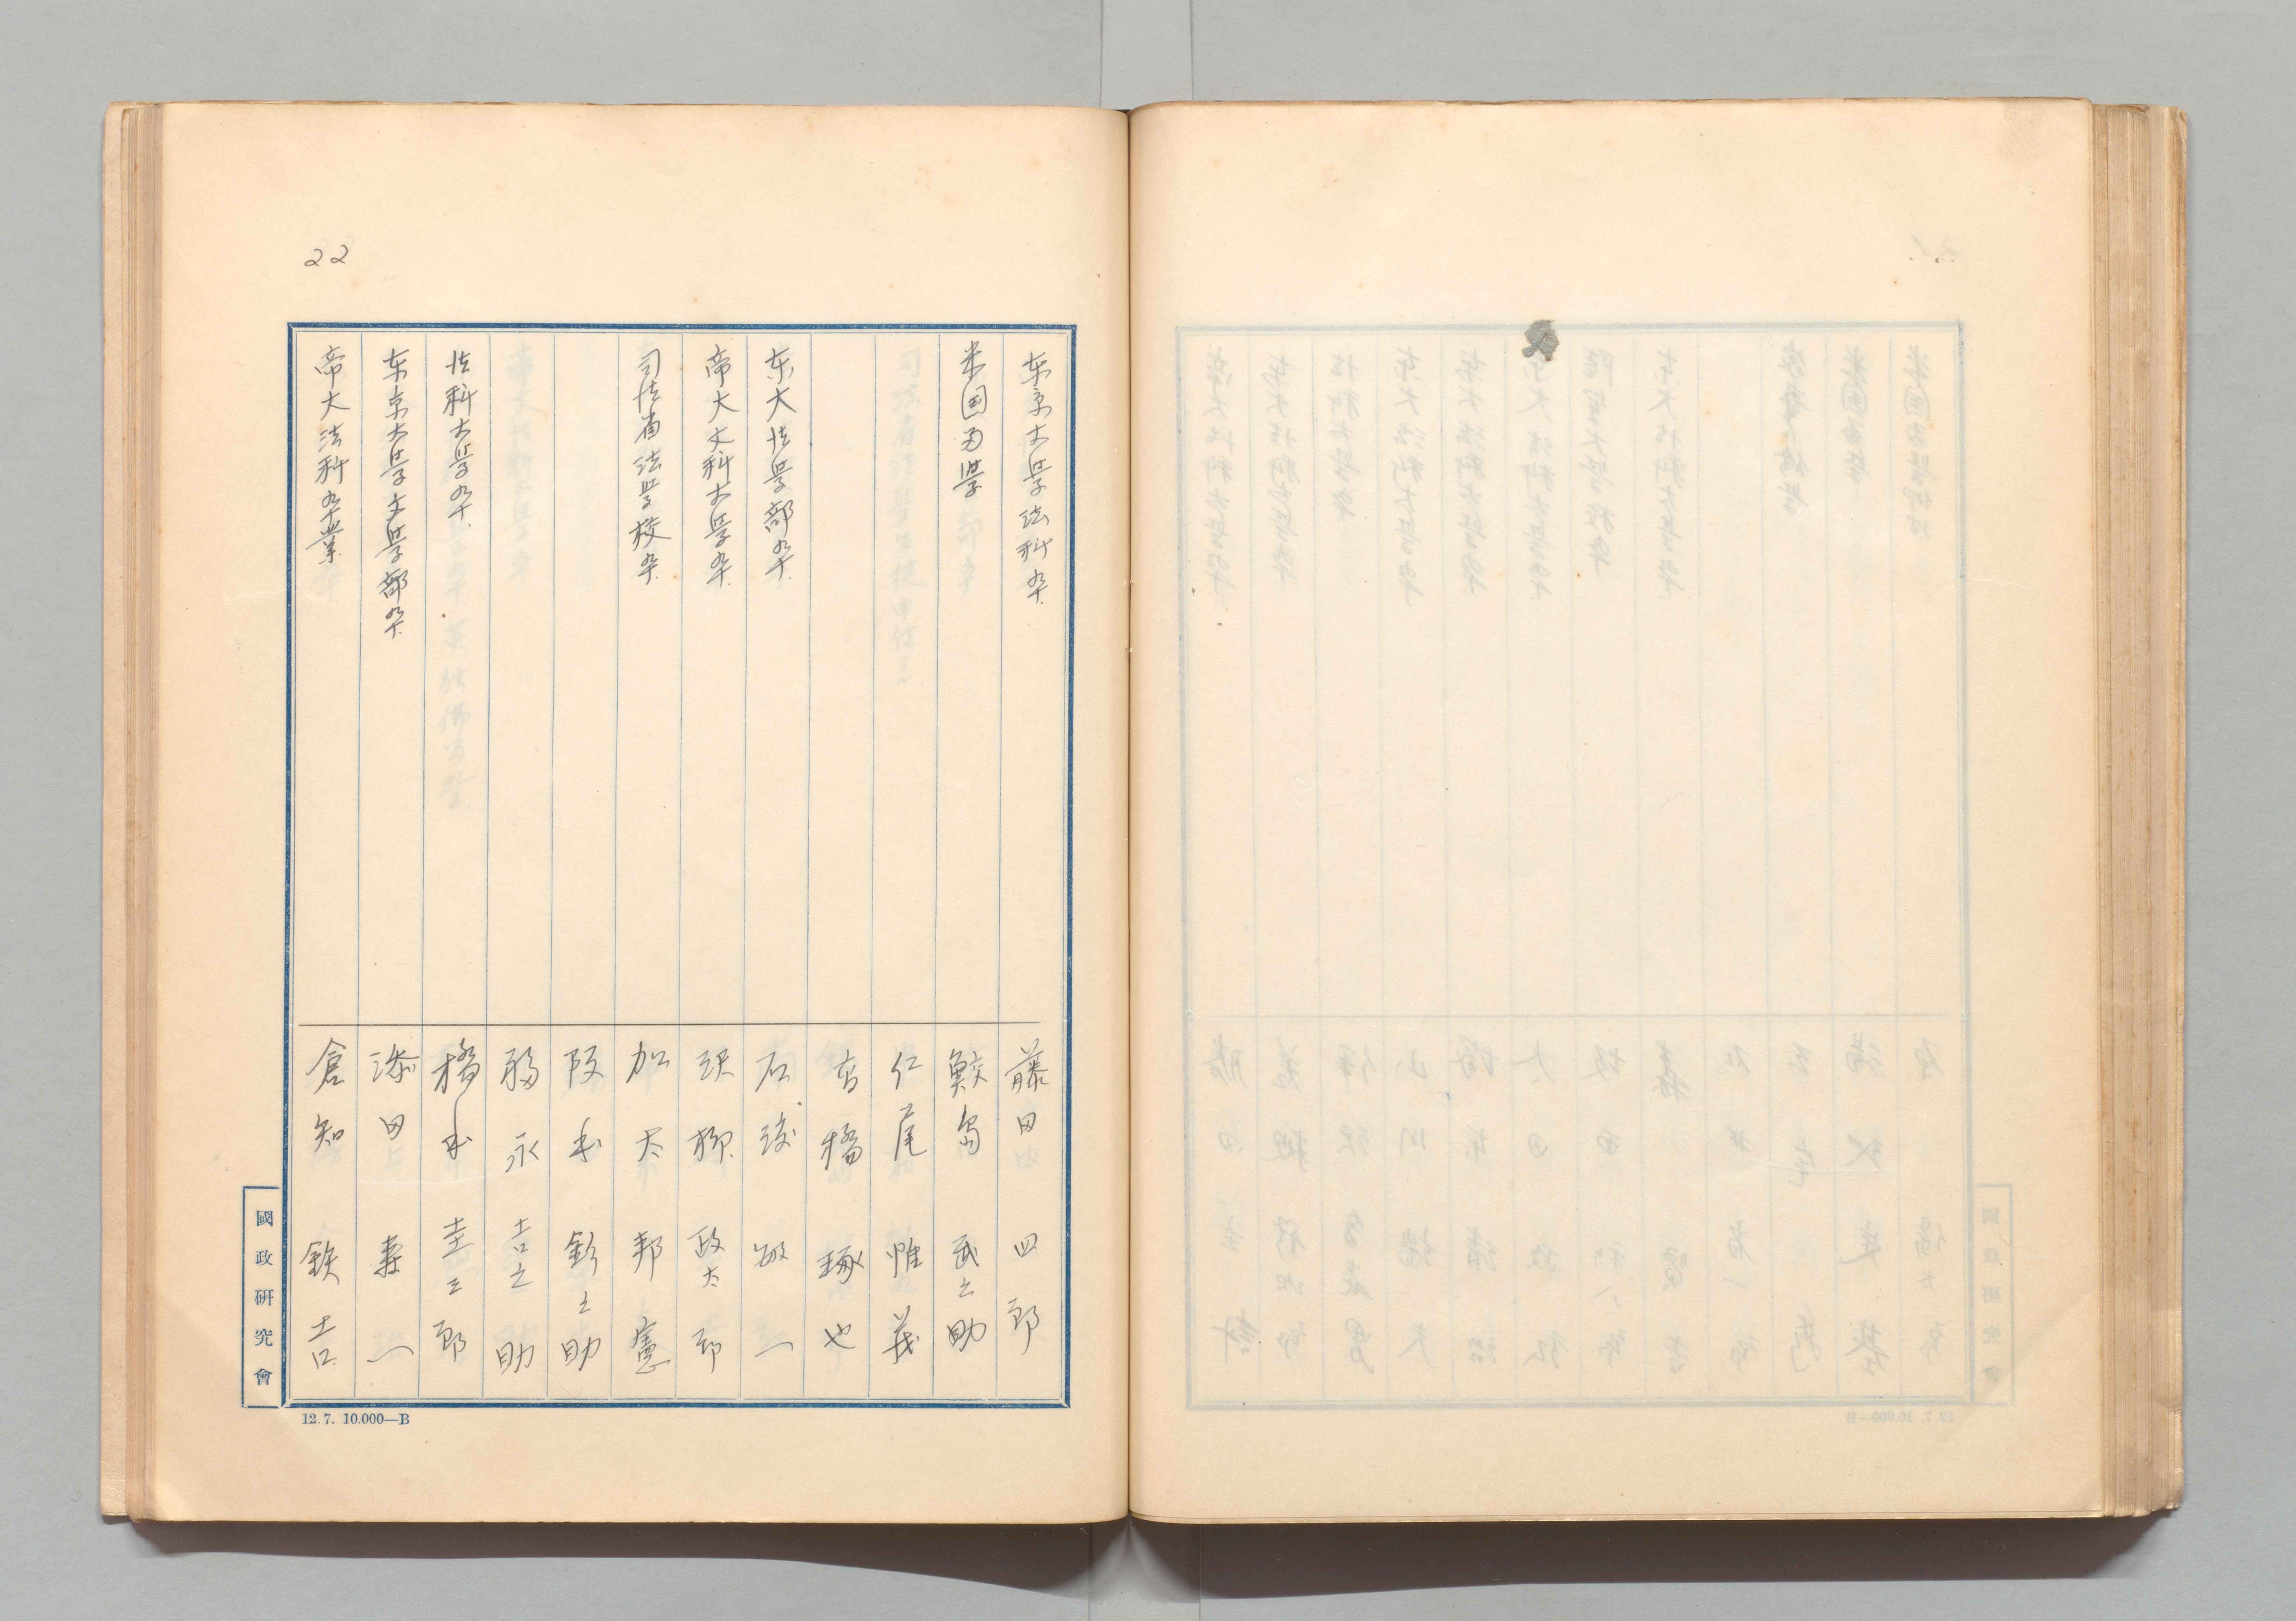 22
東京大學法科卆 藤田四郎
米国留学 鮫島武之助
仁尾惟茂
高橋琢也
東大法学部卆 石渡敏一
帝大文科大学卆 頭柳政太郎
司法省法学校卆 加太邦憲
阪本釤之助
福永吉之助
法科大学卆 橋本圭三郎
東京大学文学部卆 添田壽一
帝大法科卆業 倉知鉄吉
國政研究會
12.7. 10.000—B